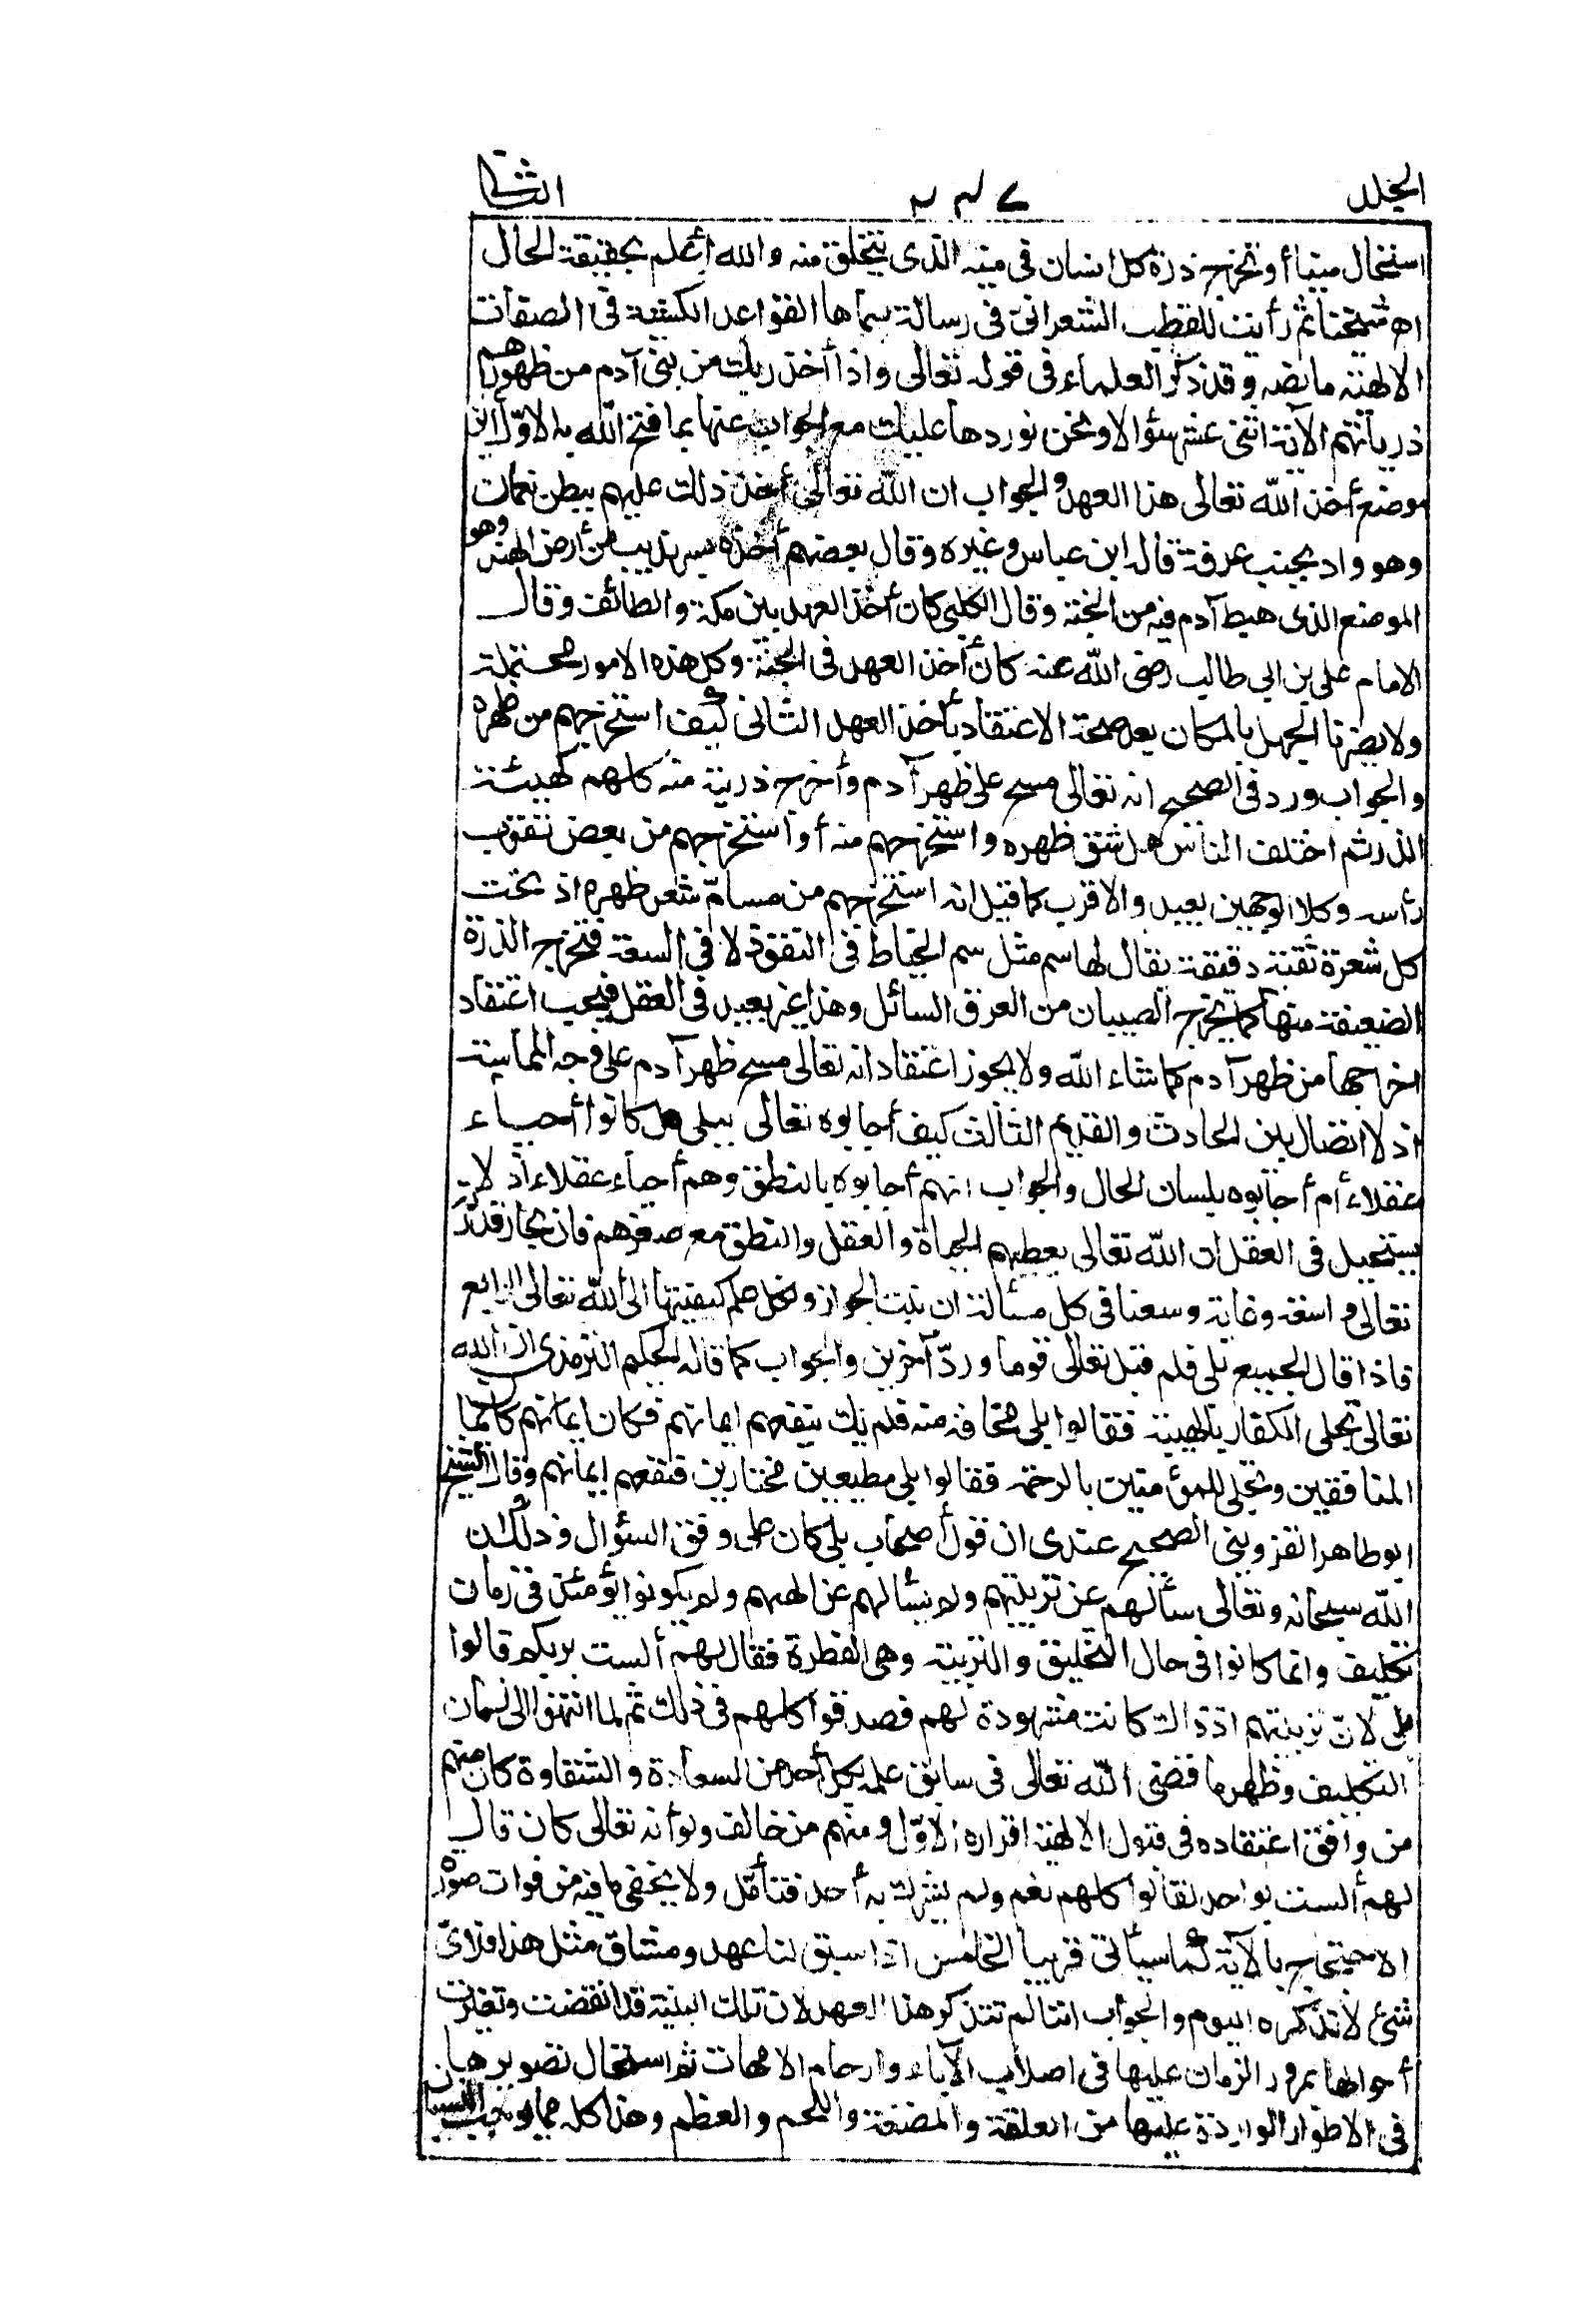 المجلد ٢٣٧ الثانى
استحال منيا أو تخرج ذرة كل انسان فى منيه الذى يتخلق منه والله أعلم بحقيقة الحال
اه شيخنا ثم رأيت للقطب الشعرانى فى رسالة سماها القواعد الكشفية فى الصفات
الالهية ما نصه وقد ذكر العلماء فى قوله تعالى واذ أخذ ربك من بنى آدم من ظهورهم
ذرياتهم الآية اثنى عشر سؤالا ونحن نوردها عليك مع الجواب عنها بما فتح الله به الاول أين
موضع أخذ الله تعالى هذا العهد والجواب ان الله تعالى أخذ ذلك عليهم ببطن نعمان
وهو واد بجنب عرفة قاله ابن عباس وغيره وقال بعضهم أخذه بسرنديب من أرض الهند وهو
الموضع الذى هبط آدم فيه من الجنة وقال الكلبى كان أخذ العهد بين مكة والطائف وقال
الامام على بن ابي طالب رضى الله عنه كان أخذ العهد فى الجنة وكل هذه الامور محتملة
ولا يضرنا الجهل بالمكان بعد صحة الاعتقاد بأخذ العهد الثانى كيف استخرجهم من ظهره
والجواب ورد فى الصحيح انه تعالى مسح على ظهر آدم وأخرج ذريته منه كلهم كهيئة
الذر ثم اختلف الناس هل شق ظهره واستخرجهم منه أو استخرجهم من بعض ثقوب
رأسه وكلا الوجهين بعيد والاقرب كما قيل انه استخرجهم من مسام شعر ظهره اذ تحت
كل شعرة ثقبة دقيقة يقال لها سم مثل سم الخياط فى النفوذ لا فى السعة فتخرج الذرة
الضعيفة منها كما يخرج الصيبان من العرق السائل وهذا غير بعيد فى العقل فيجب اعتقاد
اخراجها من ظهر آدم كما شاء الله ولا يجوز اعتقاد انه تعالى مسح ظهر آدم على وجه المماسة
اذ لا اتصال بين الحادث والقديم الثالث كيف أجابوه تعالى ببلى هل كانوا أحياء
عقلاء أم أجابوه بلسان الحال والجواب انهم أجابوه بالنطق وهم أحياء عقلاء اذ لا
يستحيل فى العقل ان الله تعالى يعطيهم الحياة والعقل والنطق مع صغرهم فان بحار قدرته
تعالى واسعة وغاية وسعنا فى كل مسألة ان نثبت الجواز ونكل علم كيفيتها الى الله تعالى الرابع
فاذا قال الجميع بلى فلم قبل تعالى قوما وردّ آخرين والجواب كما قاله الحكيم الترمذى ان الله
تعالى تجلى للكفار بالهيبة فقالوا بلى مخافة منه فلم يك ينفعهم ايمانهم فكان ايمانهم كايمان
المنافقين وتجلى للمؤمنين بالرحمة فقالوا بلى مطيعين مختارين فنفعهم إيمانهم وقال الشيخ
ابو طاهر القزوينى الصحيح عندى ان قول أصحاب بلى كان على وفق السؤال وذلك أن
الله سبحانه وتعالى سألهم عن تربيتهم ولم يسألهم عن الههم ولم يكونوا يومئذ فى زمان
تكليف وانما كانوا فى حال التخليق والتربية وهى الفطرة فقال لهم ألست بربكم قالوا
بلى لان تربيتهم اذ ذاك كانت مشهودة لهم فصدقوا كلهم فى ذلك ثم لما انتهوا الى زمان
التكليف وظهر ما قضى الله تعالى فى سابق علمه لكل أحد من السعادة والشقاوة كان منهم
من وافق اعتقاده فى قبول الالهية اقراره الاول ومنهم من خالف ولو أنه تعالى كان قال
لهم ألست بواحد لقالوا كلهم نعم ولم يشرك به أحد فتأمّل ولا يخفى ما فيه من فوات صورة
الاحتجاج بالآية كما سيأتى قريبا الخامس اذا سبق لنا عهد وميثاق مثل هذا فلأى
شئ لا نذكره اليوم والجواب اننا لم نتذكر هذا العهد لان تلك البنية قد انقضت وتغيرت
أحوالها بمرور الزمان عليها فى اصلاب الآباء وارحام الامهات ثم استحال تصويرها
فى الاطوار الواردة عليها من العلقة والمضغة واللحم والعظم وهذا كله مما يوجب النسيان